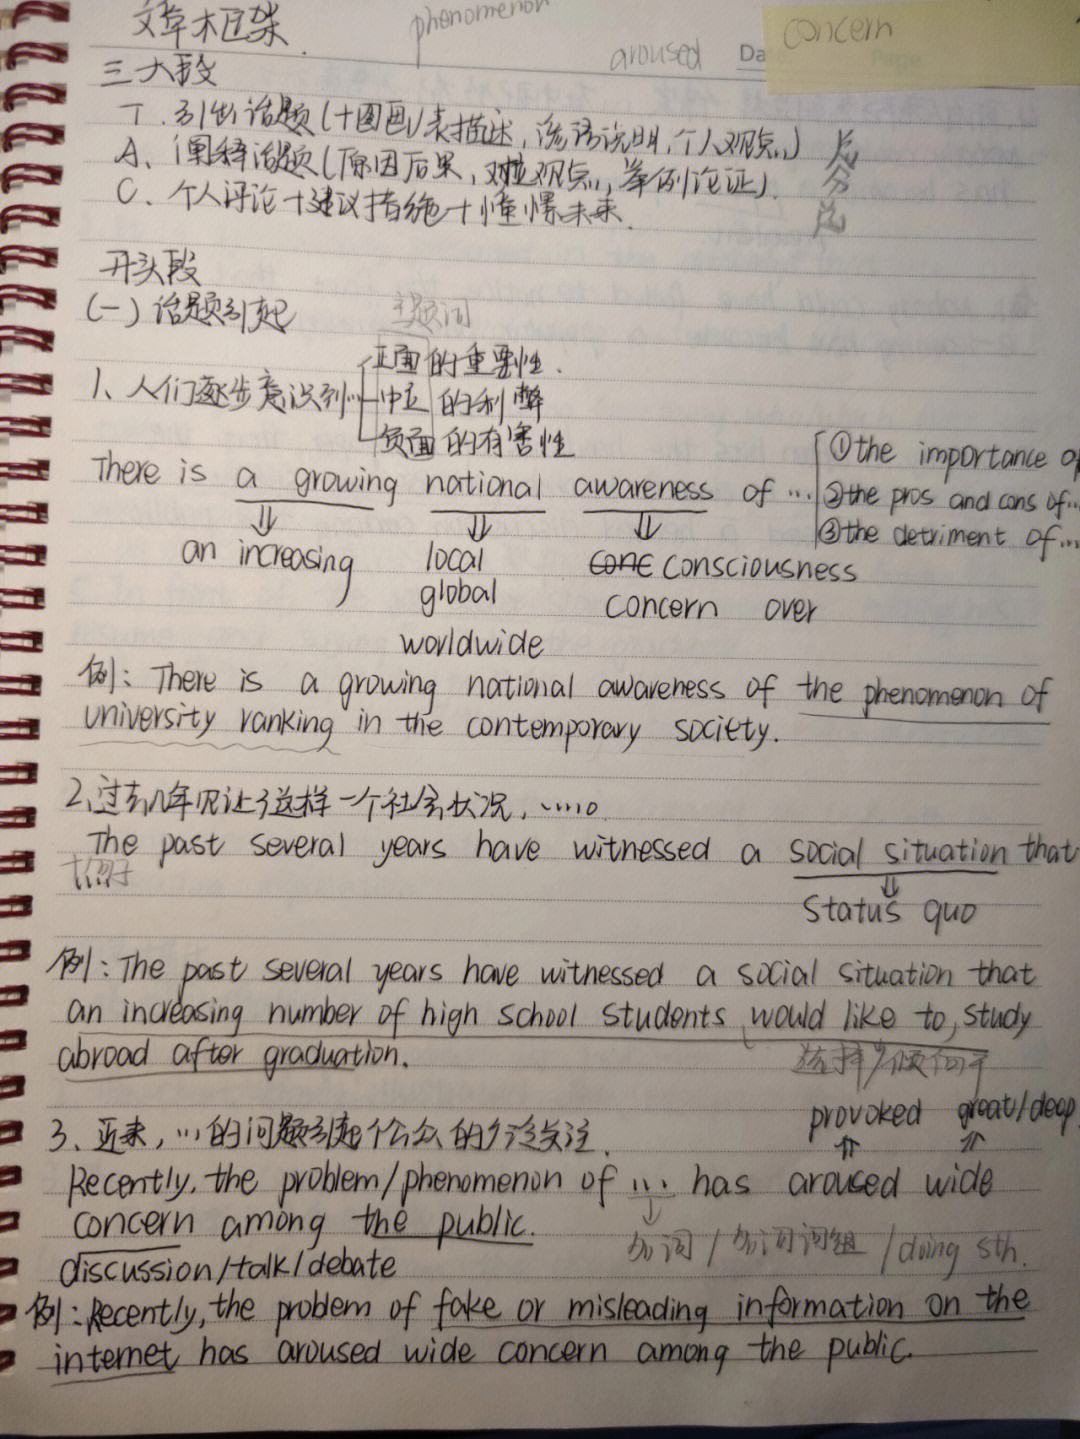 文章框架
phenomenon
aroused
Da
concern
三大段
T. 引出话题(十图画/表描述, 谚语说明, 个人观点) 总
A、阐释话题(原因后果, 对应观点, 举例论证). 分
C、个人评论十建议措施十憧憬未来. 总
开头段
(一) 话题引起 主题词
正面的重要性.
1、人们逐步意识到… 中立 的利弊
负面的有害性
There is a growing national awareness of ... ①the importance of
②the pros and cons of...
③the detriment of...
an increasing local consciousness
global concern over
worldwide
例: There is a growing national awareness of the phenomenon of
university ranking in the contemporary society.
2、过去几年见证了这样一个社会状况, ……。
The past several years have witnessed a social situation that
十例子
status quo
例: The past several years have witnessed a social situation that
an increasing number of high school students would like to study
abroad after graduation.
选择/倾向于
provoked great/deep
3、近来, … 的问题引起个公众的广泛关注.
Recently, the problem/phenomenon of ... has aroused wide
concern among the public.
名词/名词词组/doing sth.
discussion/talk/debate
例: Recently, the problem of fake or misleading information on the
internet has aroused wide concern among the public.